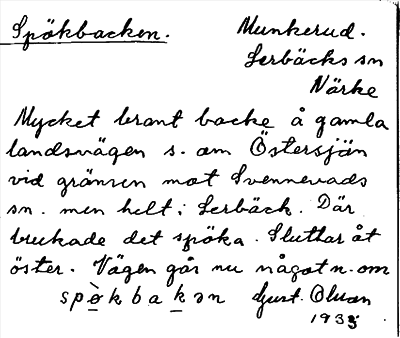 Spökbacken. Munkerud.
Lerbäcks sn
Närke
Mycket brant backe å gamla
landsvägen s. om Östersjön
vid gränsen mot Svennevads
sn. men helt i Lerbäck. Där
brukade det spöka. Sluttar åt
öster. Vägen går nu något n. om
spø̀kbakən Gust. Olson
1935